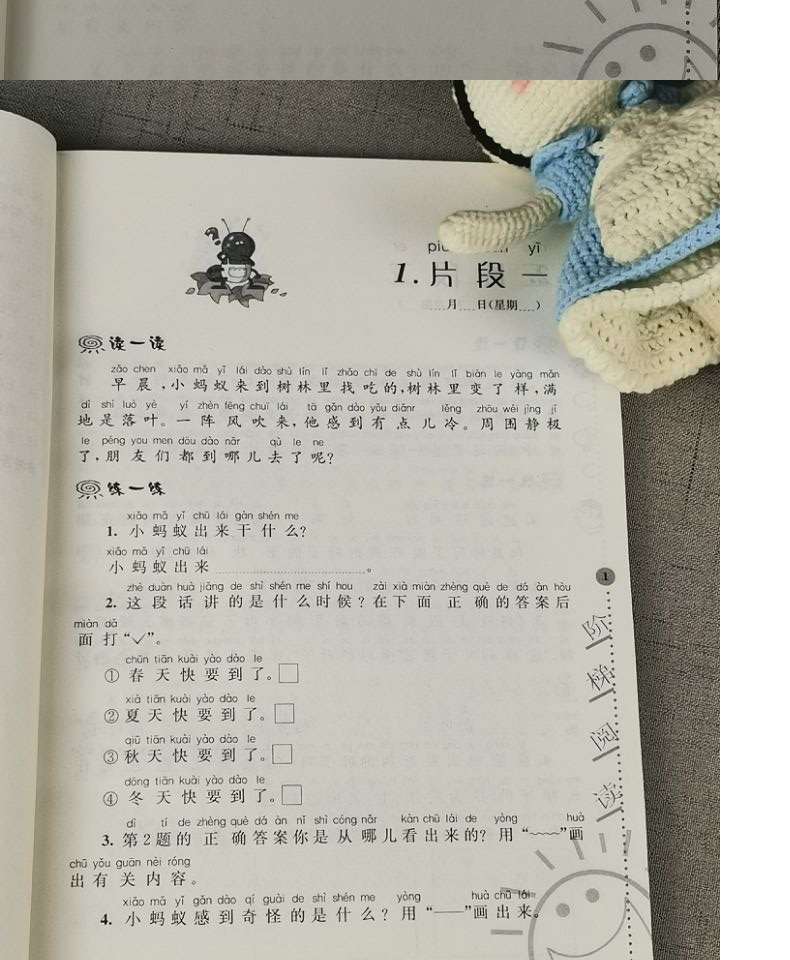 piu yī
1.片段一
月 日(星期 )
读一读
zǎo chen xiǎo mǎ yǐ lái dào shù lín lǐ zhǎo chī de shù lín lǐ biàn le yàng mǎn
早晨,小蚂蚁来到树林里找吃的,树林里变了样,满
dì shì luò yè yí zhèn fēng chuī lái tā gǎn dào yǒu diǎnr lěng zhōu wéi jìng jí
地是落叶。一阵风吹来,他感到有点儿冷。周围静极
le péng you men dōu dào nǎr qù le ne
了,朋友们都到哪儿去了呢?
练一练
xiǎo mǎ yǐ chū lái gàn shén me
1. 小蚂蚁出来干什么?
xiǎo mǎ yǐ chū lái
小蚂蚁出来 。
zhè duàn huà jiǎng de shì shén me shí hou zài xià miàn zhèng què de dá àn hòu
2. 这段话讲的是什么时候?在下面正确的答案后
miàn dǎ
面打“✓”。
chūn tiān kuài yào dào le
①春天快要到了。□
xià tiān kuài yào dào le
②夏天快要到了。□
qiū tiān kuài yào dào le
③秋天快要到了。□
dōng tiān kuài yào dào le
④冬天快要到了。□
dì tí de zhèng què dá àn nǐ shì cóng nǎr kàn chū lái de yòng huà
3. 第2题的正确答案你是从哪儿看出来的?用“﹏﹏”画
chū yǒu guān nèi róng
出有关内容。
xiǎo mǎ yǐ gǎn dào qí guài de shì shén me yòng huà chū lái
4. 小蚂蚁感到奇怪的是什么?用“——”画出来。
1
阶梯阅读